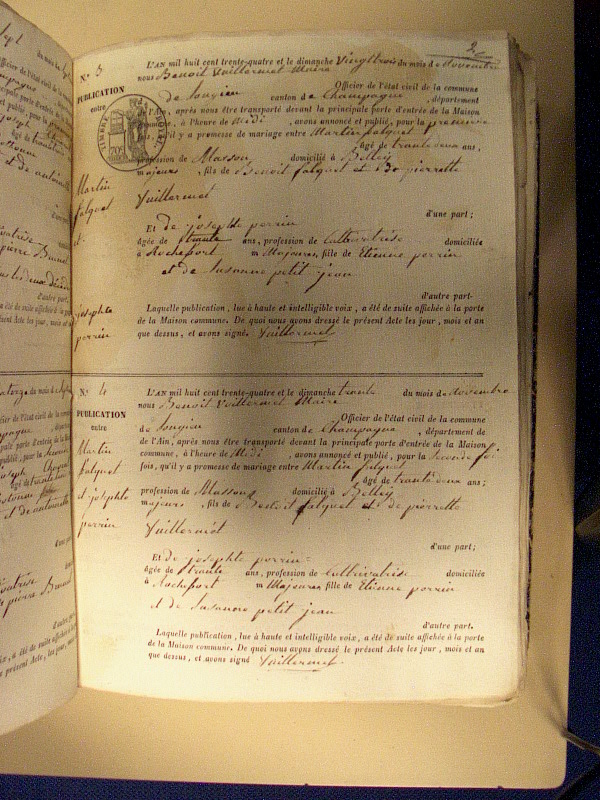 2
N.° 3
PUBLICATION
entre
Martin
falquet
et
josephte
perrin
L'AN mil huit cent trente-quatre et le dimanche Vingttrois du mois de Novembre
nous Benoit Vuillermet Maire
Officier de l'état civil de la commune
de Songieu canton de Champagne, département
de l'Ain, après nous être transporté devant la principale porte d'entrée de la Maison
commune, à l'heure de Midi, avons annoncé et publié, pour la premiere
fois, qu'il y a promesse de mariage entre Martin falquet
âgé de trante deux ans,
profession de Masson domicilié à Belley
majeurs, fils de Benoit falquet et De pierrette
Vuillermet
d'une part;
Et de josephte perrin
âgée de trante ans, profession de Cultivatrise domiciliée
à Rochefort m Majeures, fille de Etienne perrin
et de Susanne petit jean
d'autre part.
Laquelle publication, lue à haute et intelligible voix, a été de suite affichée à la porte
de la Maison commune. De quoi nous avons dressé le présent Acte les jour, mois et an
que dessus, et avons signé. Vuillermet
N.° 4
PUBLICATION
entre
Martin
falquet
et josephte
perrin
L'AN mil huit cent trente-quatre et le dimanche trante du mois de Novembre
nous Benoit Vuillermet Maire
Officier de l'état civil de la commune
de Songieu canton de Champagne, département de
de l'Ain, après nous être transporté devant la principale porte d'entrée de la Maison
commune, à l'heure de Midi, avons annoncé et publié, pour la Seconde foi
fois, qu'il y a promesse de mariage entre Martin falquet
âgé de trante deux ans;
profession de Masson domicilié à Belley
majeurs, fils de Benoit falquet et de pierrette
Vuillermet
d'une part;
Et de josephte perrin
âgée de trante ans, profession de Cultivatrise domiciliée
à Rochefort m Majeures fille de Etienne perrin
et de Susanne petit jean
d'autre part.
Laquelle publication, lue à haute et intelligible voix, a été de suite affichée à la porte
de la Maison commune. De quoi nous avons dressé le présent Acte les jour, mois et an
que dessus, et avons signé Vuillermet